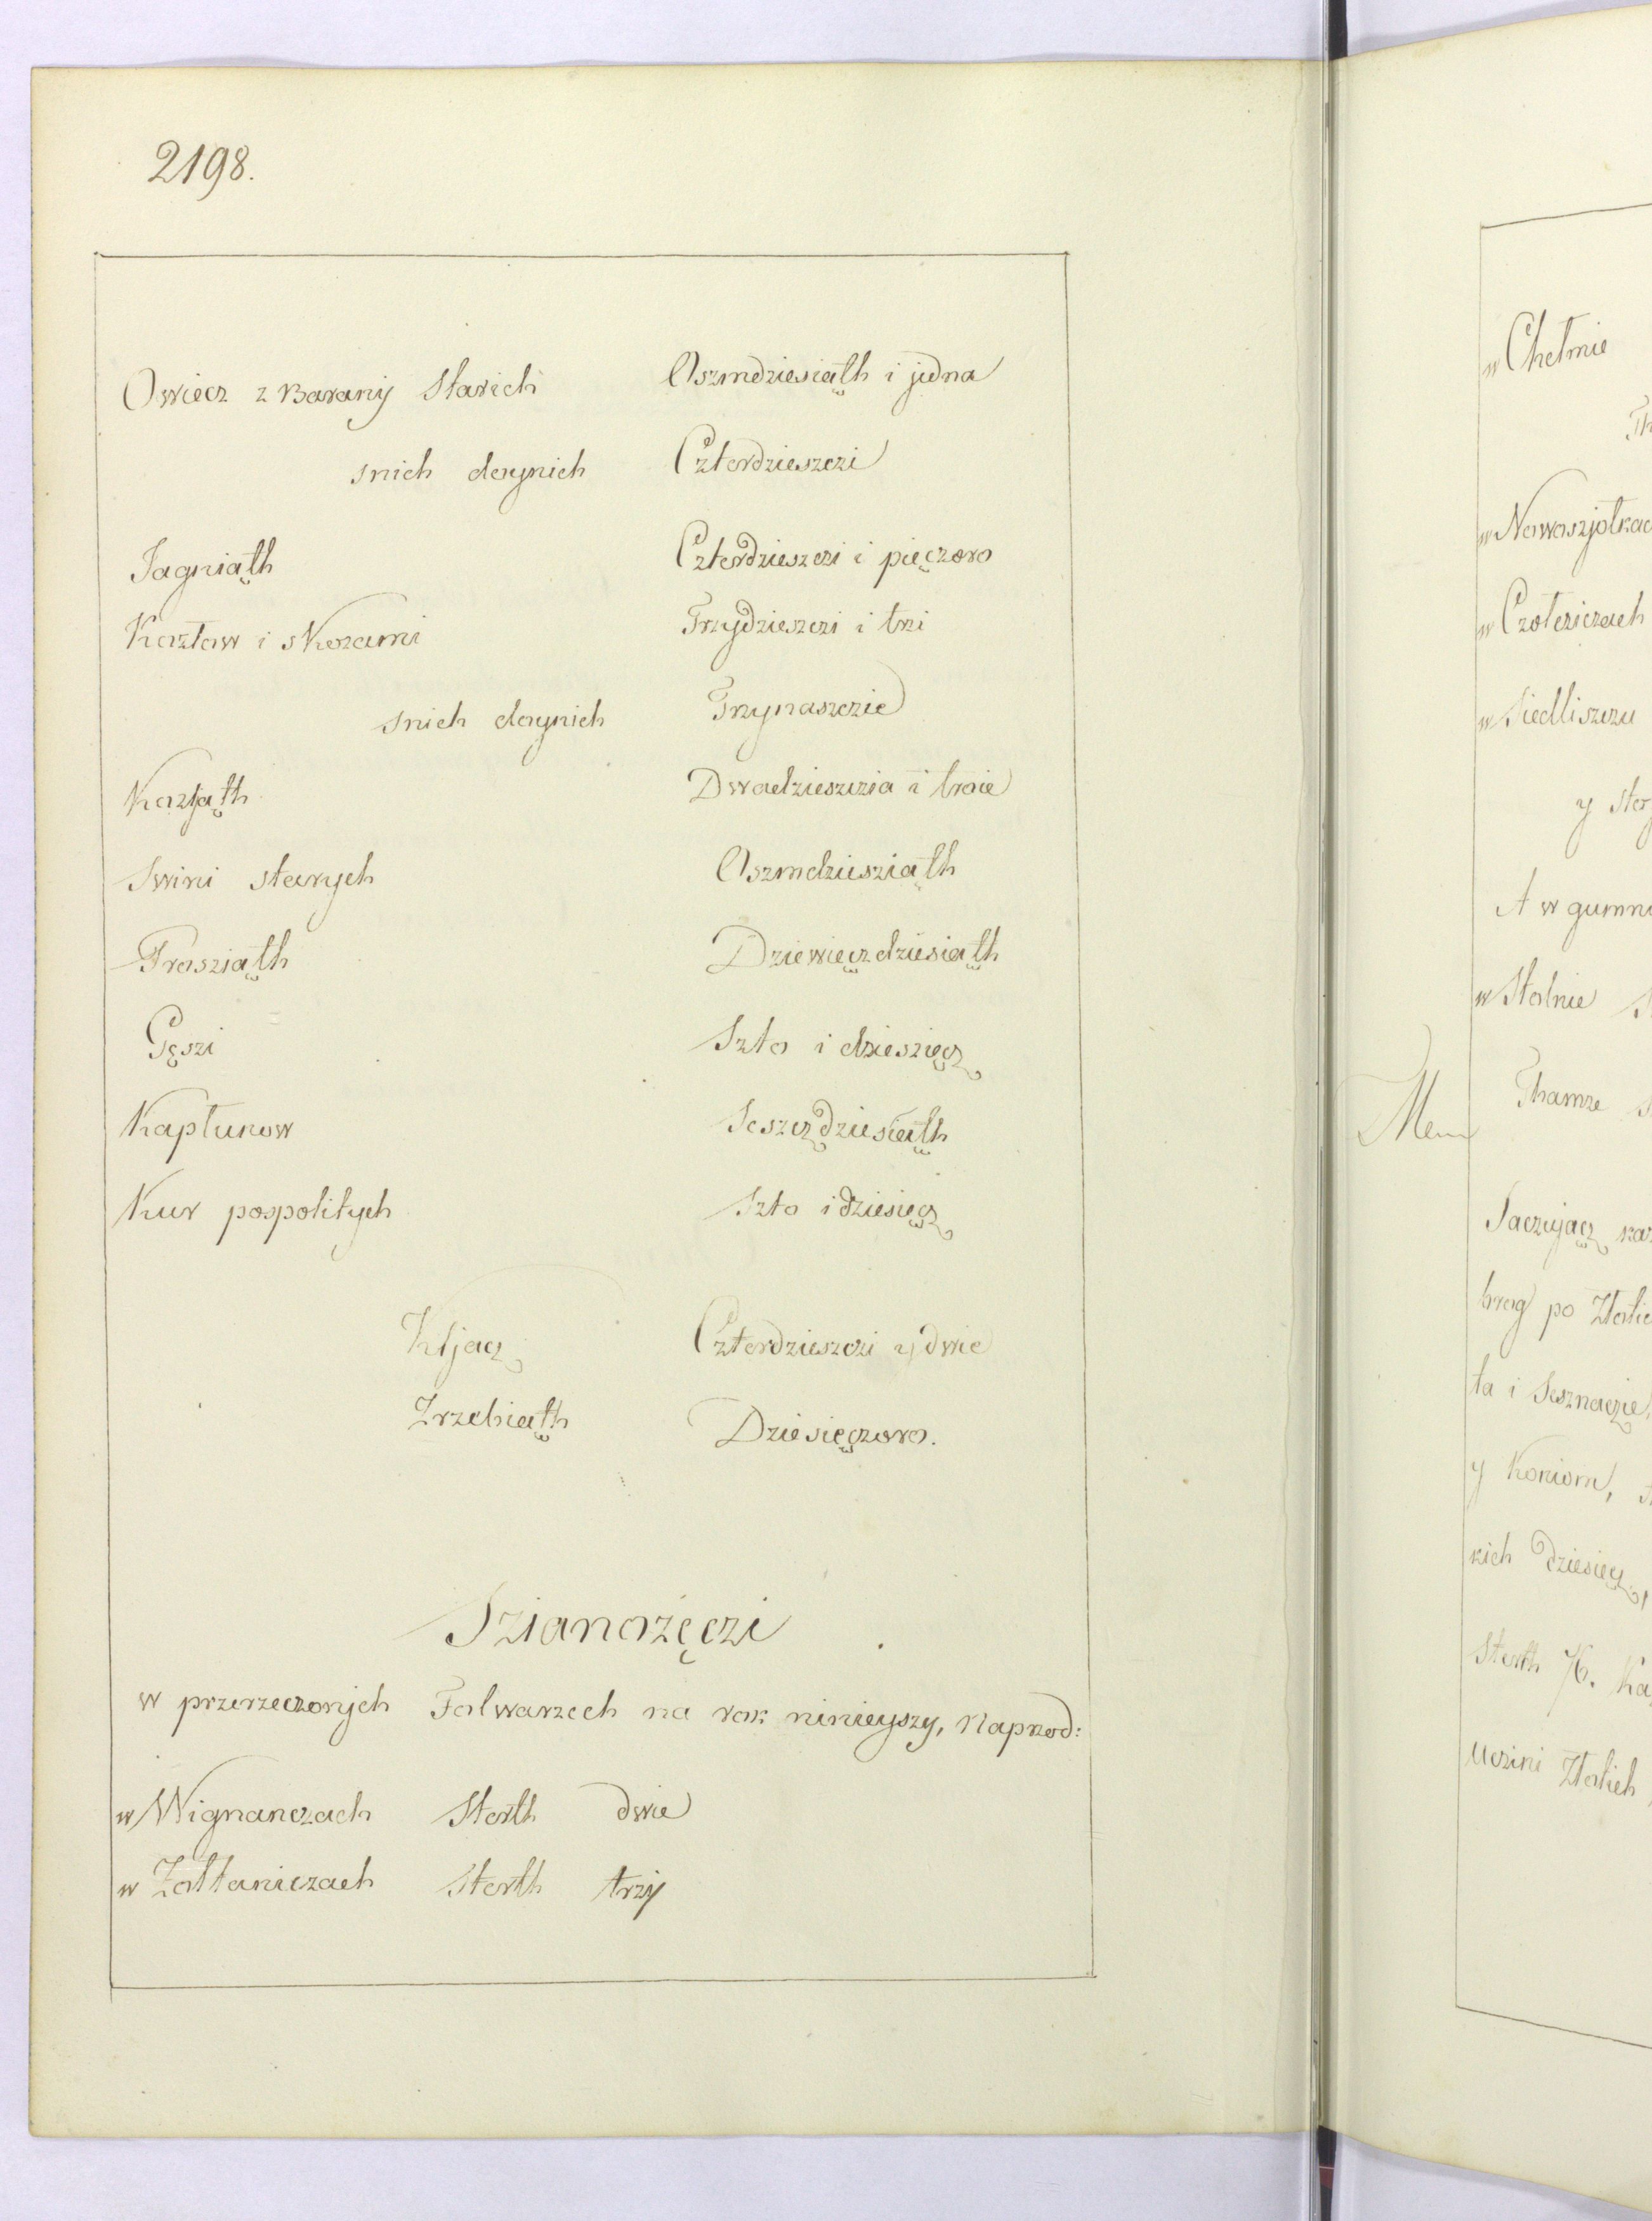 2198.
Owiecz z Barany Starich Oszmdziesiąth i jedna
snich doynich Czterdzieszczi
Jagniąth Czterdzieszczi i pięczoro
Kozłow i s Kozami Trzydzieszczi i trzi
snich doynich Trzynaszczie
Koźląth Dwadzieszczia i troie
Swini starych Oszmdziesziąth
Prosziąth Dziewięczdziesiąth
Gęszi Szto i dzieszięcz
Kapłunow Seszczdziesiąth
Kur pospolitych Szto i dziesięcz
Kljacz Czterdzieszczi y dwie
Zrzebiąth Dziesięczoro.
Szianożęczi
w przerzeczonych Folwarzech na rok ninieyszy, Naprzod:
w Wignanczach Sterth dwie
w Zołtaniczach Sterth trzy
w Chełmie
w Nowosyołkac
w Czołcziczach
w Siedliszczu
y Ster
A w gumn
w Stolnie
Thamze
Mem
Saczujacz
brog po Złotic
ta i Sesznaczie,
y Koniom,
kich dziesięcz
Sterth 76.
Uczini Złotich